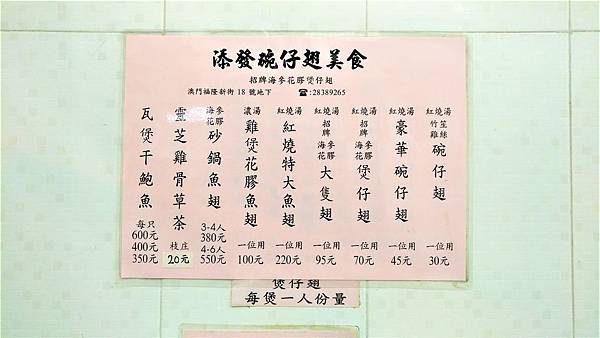 添發碗仔翅美食
招牌海參花膠煲仔翅
澳門福隆新街18號地下 ☎:28389265
紅燒湯 竹笙雞絲 碗仔翅 一位用 30元
紅燒湯 豪華碗仔翅 一位用 45元
紅燒湯 招牌 海參花膠 煲仔翅 一位用 70元
紅燒湯 招牌 海參花膠 大隻翅 一位用 95元
紅燒湯 紅燒特大魚翅 一位用 220元
濃湯 雞煲花膠魚翅 一位用 100元
海參花膠 砂鍋魚翅 3-4人 380元 4-6人 550元
靈芝雞骨草茶 枝庄 20元
瓦煲干鮑魚 每只 600元 400元 350元
煲仔翅
每煲一人份量